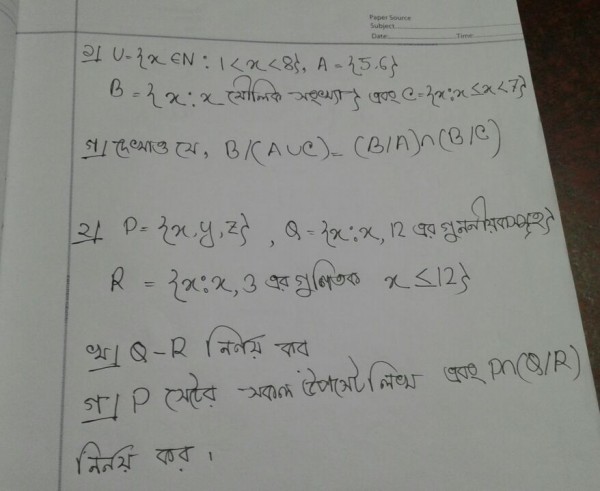 Paper Source
Subject
Date: Time:
১) U = {x ∈ N : 1 < x < 8}, A = {5.6}
B = {x : x মৌলিক সংখ্যা} এবং C = {x : x ≤ x < 7}
গ| দেখাও যে, B/(A∪C) = (B/A)∩(B/C)
২| P = {x, y, z}, Q = {x : x, 12 এর গুননীয়কসমূহ}
R = {x : x, 3 এর গুণিতক x ≤ 12}
খ| Q - R নির্নয় কর
গ| P সেটের সকল উপসেট লিখ এবং P∩(Q/R)
নির্নয় কর।